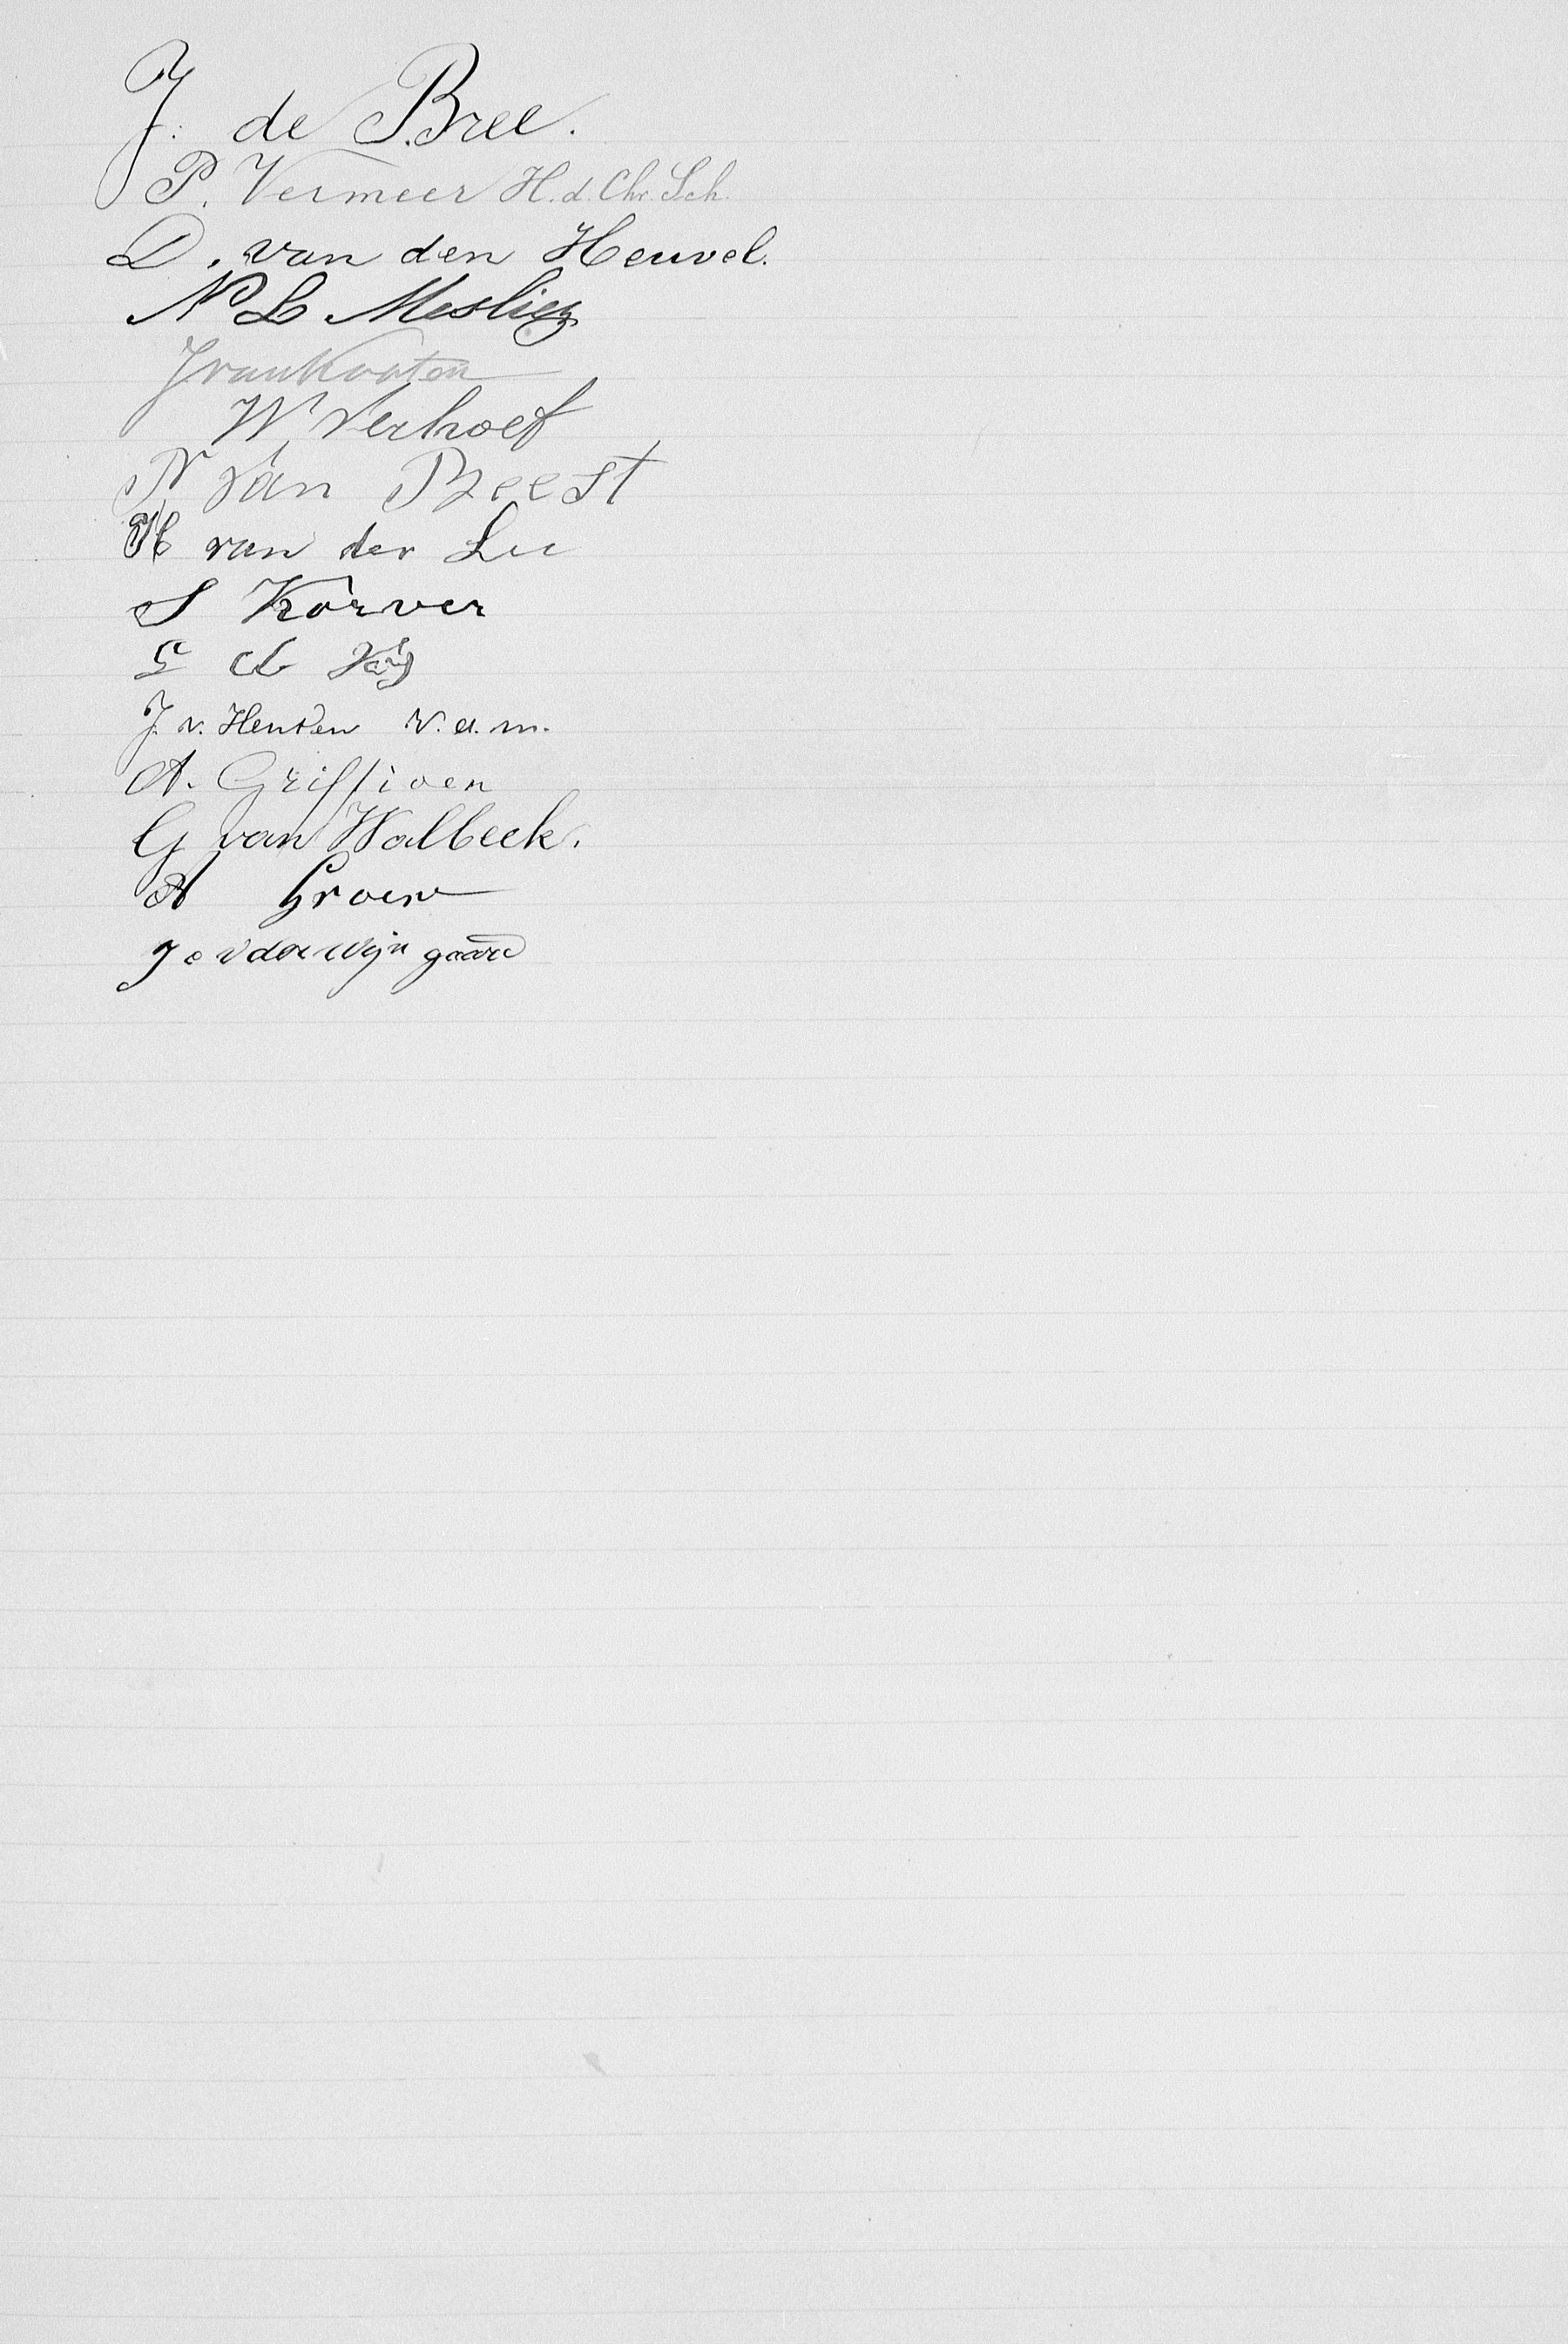 J. de Bree.
P. Vermeer H. d. Chr. Sch.
D. van den Heuvel.
N L Mesliez
J van Kooten
W Verhoef
N van Breest
H van der Lee
S Korver
J. v. Henten V.d.m.
A. Griffioen
G van Walbeek.
A Groen
J C v der Wijngaard